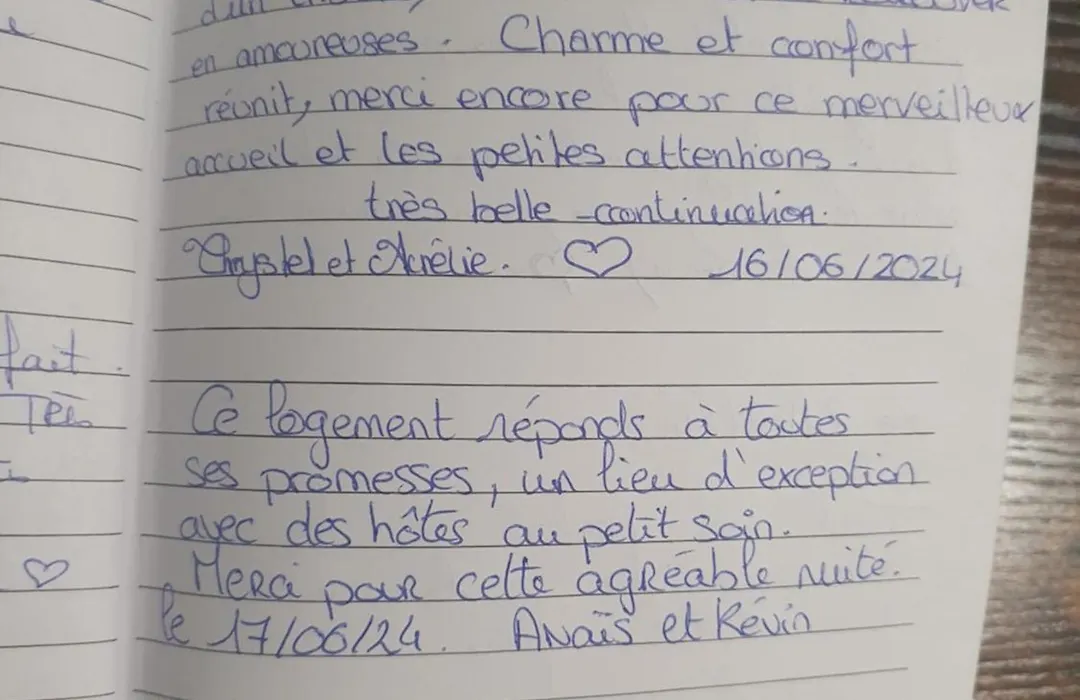 en amoureuses. Charme et confort
réunit, merci encore pour ce merveilleux
accueil et les petites attentions.
très belle continuation.
Chrystel et Aurélie. ♡ 16/06/2024
fait.
Très
♡
Ce logement réponds à toutes
ses promesses, un lieu d'exception
avec des hôtes au petit soin.
Merci pour cette agréable nuité.
le 17/06/24. Anaïs et Kévin